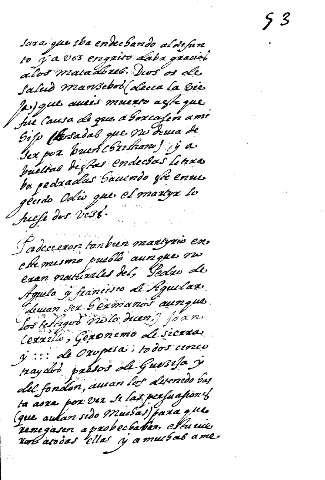 53
sara, que iba endechando al difun
to y a vos en grito daba gracias
a los matadores. Dios os de
salud mansebos (decia la vie
ja) que aueis muerto a este que
fue causa de que ahorcasen a mi
hijo que no deuia de
ser por buen christiano) y a
bueltas destas endechas le tira
ba pedradas haciendo su enue
gecido odio que el martyr lo
fuese dos veses.
Padecieron tanbien martyrio en
este mesmo pueblo aunque no
eran naturales del, Pedro de
Aguila y francisco de Aguilar
deuian ser hermanos aunque
los testigos no lo dicen, Joan
Carrillo, Geronimo de sierra,
y ::: de Oropesa; todos cinco
traydos presos de Guezija y
del fondon, auian los detenido has
ta aora por ver si las persuasiones
(que auian sido muchas) para que
renegasen aprobechaban. estuuie
ron a todas ellas y a muchas ame